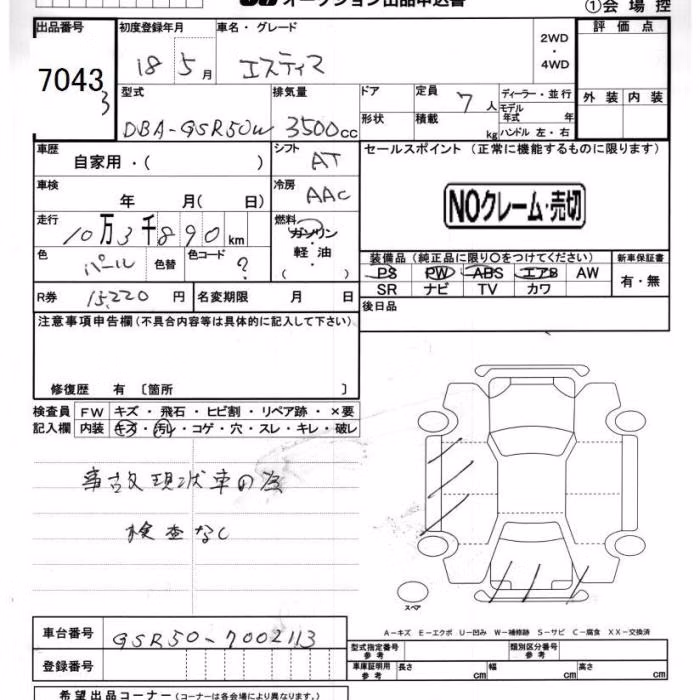 オークション出品申込書
①会場控
出品番号 初度登録年月 車名・グレード 2WD・4WD 評価点
7043 3 18 5月 エスティマ
型式 排気量 ドア 定員 7人 ディーラー・並行 外装 内装
モデル年式 年
DBA-GSR50W 3500cc 形状 積載 kg ハンドル 左・右
車歴 自家用・( ) シフト AT セールスポイント (正常に機能するものに限ります)
車検 年 月( 日) 冷房 AAC
NOクレーム・売切
走行 10万3千890km 燃料 ガソリン
軽油
( )
色 パール 色替 色コード ? 装備品 (純正品に限り○をつけてください) 新車保証書
PS PW ABS エアB AW 有・無
R券 15,220円 名変期限 月 日 SR ナビ TV カワ
後日品
注意事項申告欄(不具合内容等は具体的に記入して下さい)
修復歴 有 〔箇所 〕
検査員 FW キズ・飛石・ヒビ割・リペア跡・×要
記入欄 内装 キズ・汚レ・コゲ・穴・スレ・キレ・破レ
事故現状車の為
検査なし
スペア
A-キズ E-エクボ U-凹み W-補修跡 S-サビ C-腐食 XX-交換済
車台番号 GSR50-7002113
型式指定番号 参考 類別区分番号 参考
登録番号 車庫証明用 参考 長さ cm 幅 cm 高さ cm
希望出品コーナー(コーナーは各会場により異なります。)